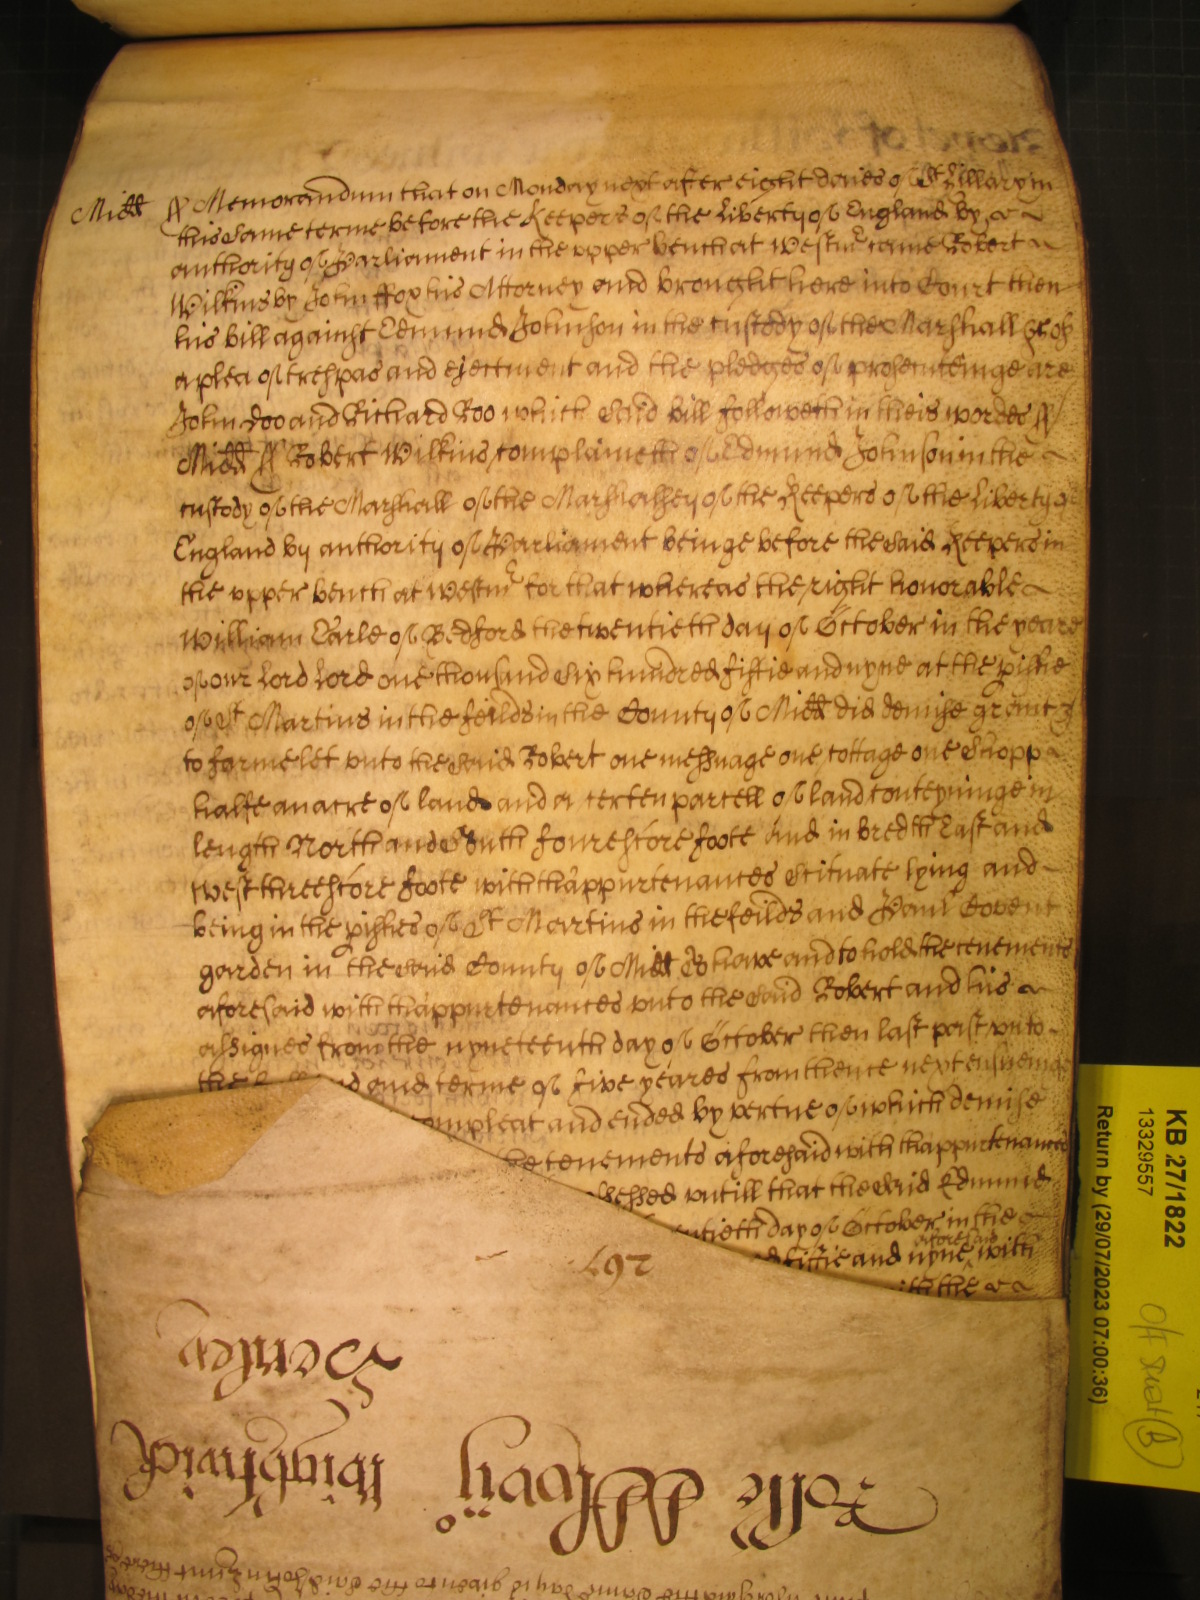 Midd ss Memorandum that on Monday next after eight daies of St Hillary in
this same terme before the Keepers of the Liberty of England by
authority of Parliament in the upper bench at Westmr came Robert
Wilkins by John ffox his Attorney and brought here into Court then
his bill against Edmund Johnson in the custody of the Marshall &c of
a plea of trespas and ejectment and the pledges of prosecuteinge are
John Doo and Richard Roo which said bill followeth in theis wordes ss
Midd ss Robert Wilkins complaineth of Edmund Johnson in the
custody of the Marshall of the Marshalsey of the Keepers of the Liberty of
England by authority of Parliament beinge before the said Keepers in
the upper bench at Westmr for that whereas the right honorable
William Earle of Bedford the twentieth day of October in the yeare
of our Lord Lord one thousand six hundred fiftie and nyne at the pishe
of St Martins in the feilds in the County of Midd did demise grant &
to farme let unto the said Robert one messuage one cottage one shopp
halfe an acre of land and a certen parcell of land conteyninge in
length North and South fourescore foote And in bredth East and
West threescore foote with thappurtenances scituate lying and
being in the pishes of St Martins in the feilds and Pauls Covent
garden in the said County of Midd To have and to hold the tenements
aforesaid with thappurtenances unto the said Robert and his
assignes from the nyneteenth day of October then last past unto
the end and terme of five yeares from thence next ensueinge
compleat and ended by vertue of which demise
the tenements aforesaid with thappurtenances
possessed untill that the said Edmund
twentieth day of October in the
aforesaid
and fiftie and nyne with
with the
267
Henley
Wightwick
Rolle
KB 27/1822
13329557
Return by (29/07/2023 07:00:36)